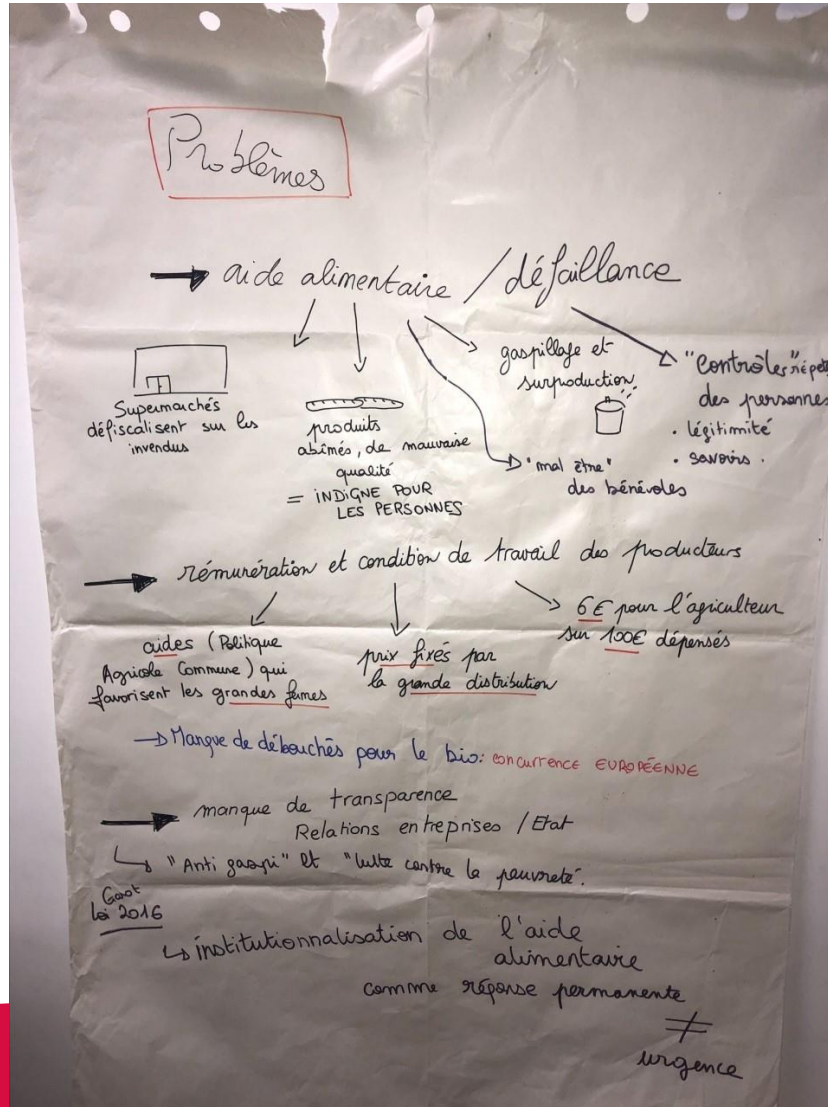 Problèmes
→ aide alimentaire / défaillance
Supermarchés
défiscalisent sur les
invendus
produits
abîmés, de mauvaise
qualité
= INDIGNE POUR
LES PERSONNES
gaspillage et
surproduction
→ "mal être"
des bénévoles
"Contrôles"
des personnes
• légitimité
• savoirs.
→ rémunération et condition de travail des producteurs
aides (Politique
Agricole Commune) qui
favorisent les grandes fermes
prix fixés par
la grande distribution
6€ pour l'agriculteur
sur 100€ dépensés
→ Manque de débouchés pour le bio: concurrence EUROPÉENNE
→ manque de transparence
Relations entreprises / Etat
↳ "Anti gaspi" et "lutte contre la pauvreté".
Garot
loi 2016
↳ institutionnalisation de l'aide
alimentaire
comme réponse permanente
≠
urgence